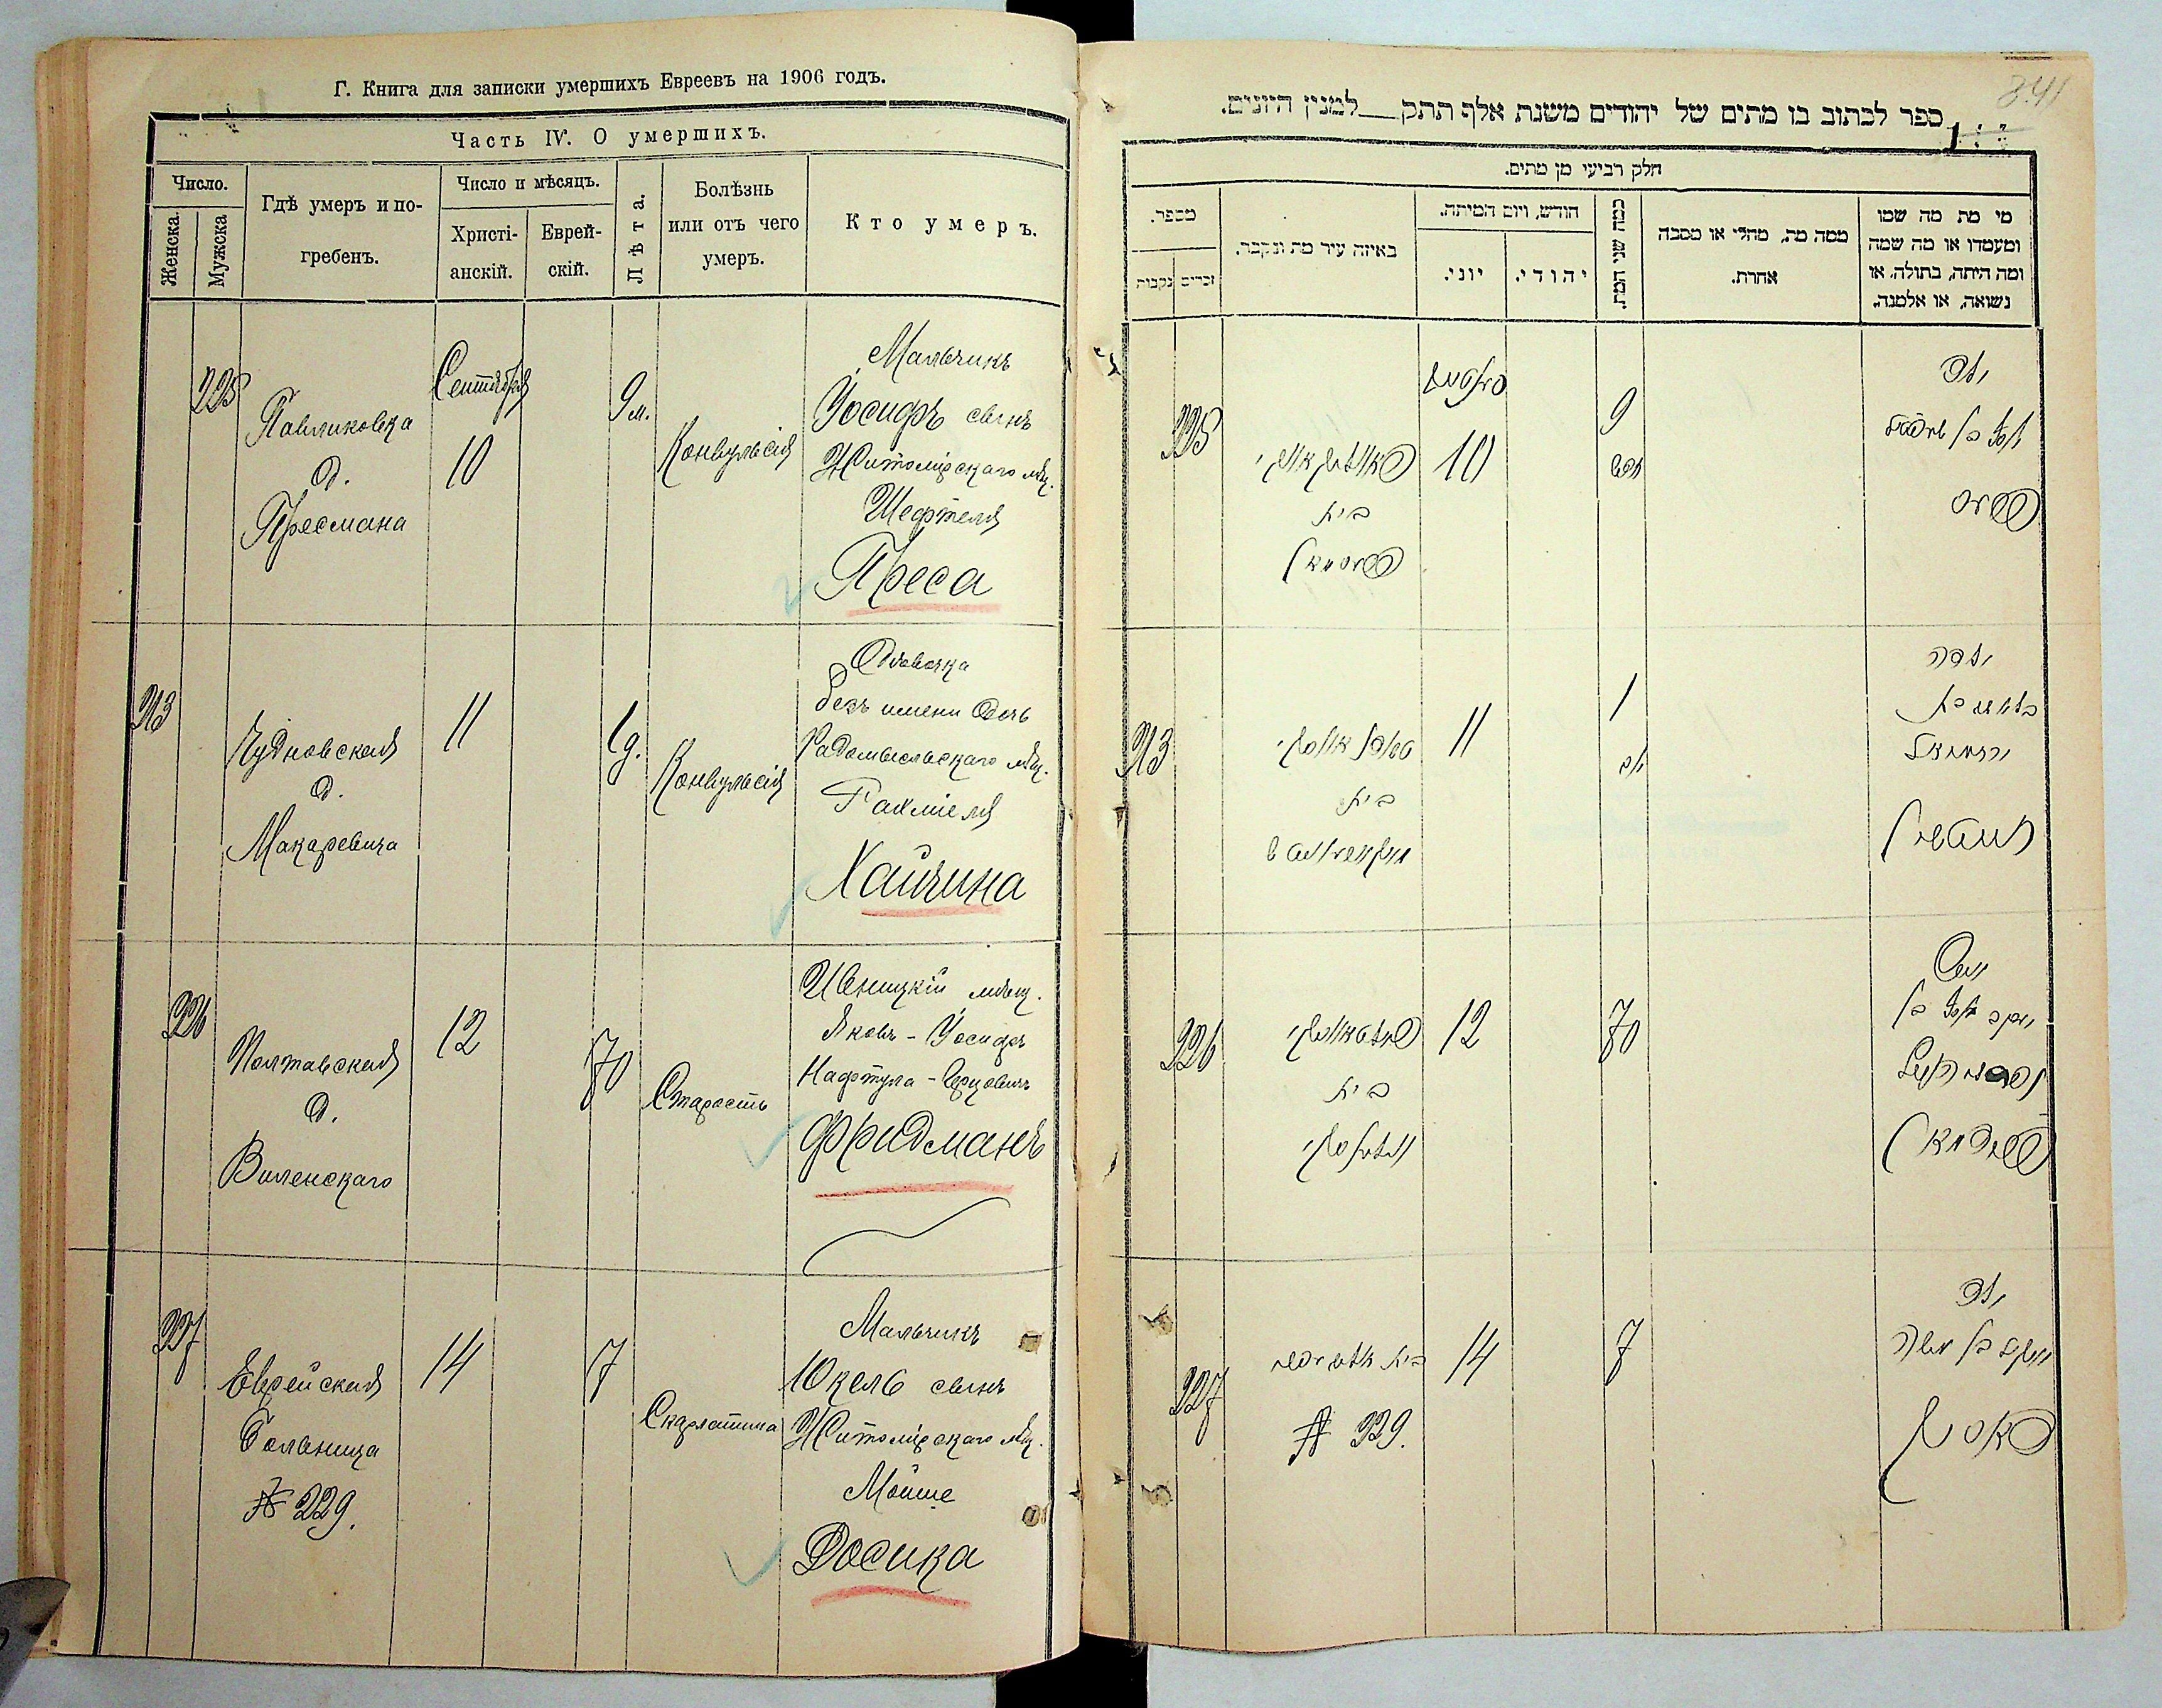 Г. Книга для записки умершихъ Евреевъ на 1906 годъ.
Часть IV. О умершихъ.
Число.
Женска.
Мужска
Гдѣ умеръ и по-
гребенъ.
Число и мѣсяцъ.
Христі-
анскій.
Еврей-
скій.
Лѣта.
Болѣзнь
или отъ чего
умеръ.
Кто умеръ.
225
Павликовка
д.
Пресмана
Сентября
10
9 м.
Конвульсія
Мальчикъ
Іосифъ сынъ
Житомірскаго мѣщ.
Шефтеля
Преса
213
Чудновская
д.
Макаревича
11
1 д.
Конвульсія
Дѣвочка
безъ имени дочь
Радомысльскаго мѣщ.
Рахміеля
Хайчина
226
Полтавская
д.
Виленскаго
12
70
Старость
Ивницкій мѣщ.
Яковъ-Іосифъ
Нафтула-Герцовичъ
Фридманъ
227
Еврейская
больница
№ 229.
14
7
Скарлатина
Мальчикъ
Юкель сынъ
Житомірскаго мѣщ.
Мойше
Досика
341
ספר לכתוב בו מתים של יהודים משנת אלף תתק__למנין היונים.
חלק רביעי מן מתים.
מספר.
נקבות
זכרים
באיזה עיר מת ונקבר.
חודש, ויום המיתה.
יוני.
יהודי.
כמה שני המת.
ממה מת, מחלי או מסבה
אחרת.
מי מת מה שמו
ומעמדו או מה שמה
ומה היתה, בתולה, או
נשואה, או אלמנה.
225
בית
10
9
ילד
פרעס
213
בית
11
1
ילדה
ירחמיאל
226
בית
12
70
יעקב יוסף בן
פרידמאן
227
№ 229.
14
7
ילד
יוקל בן משה